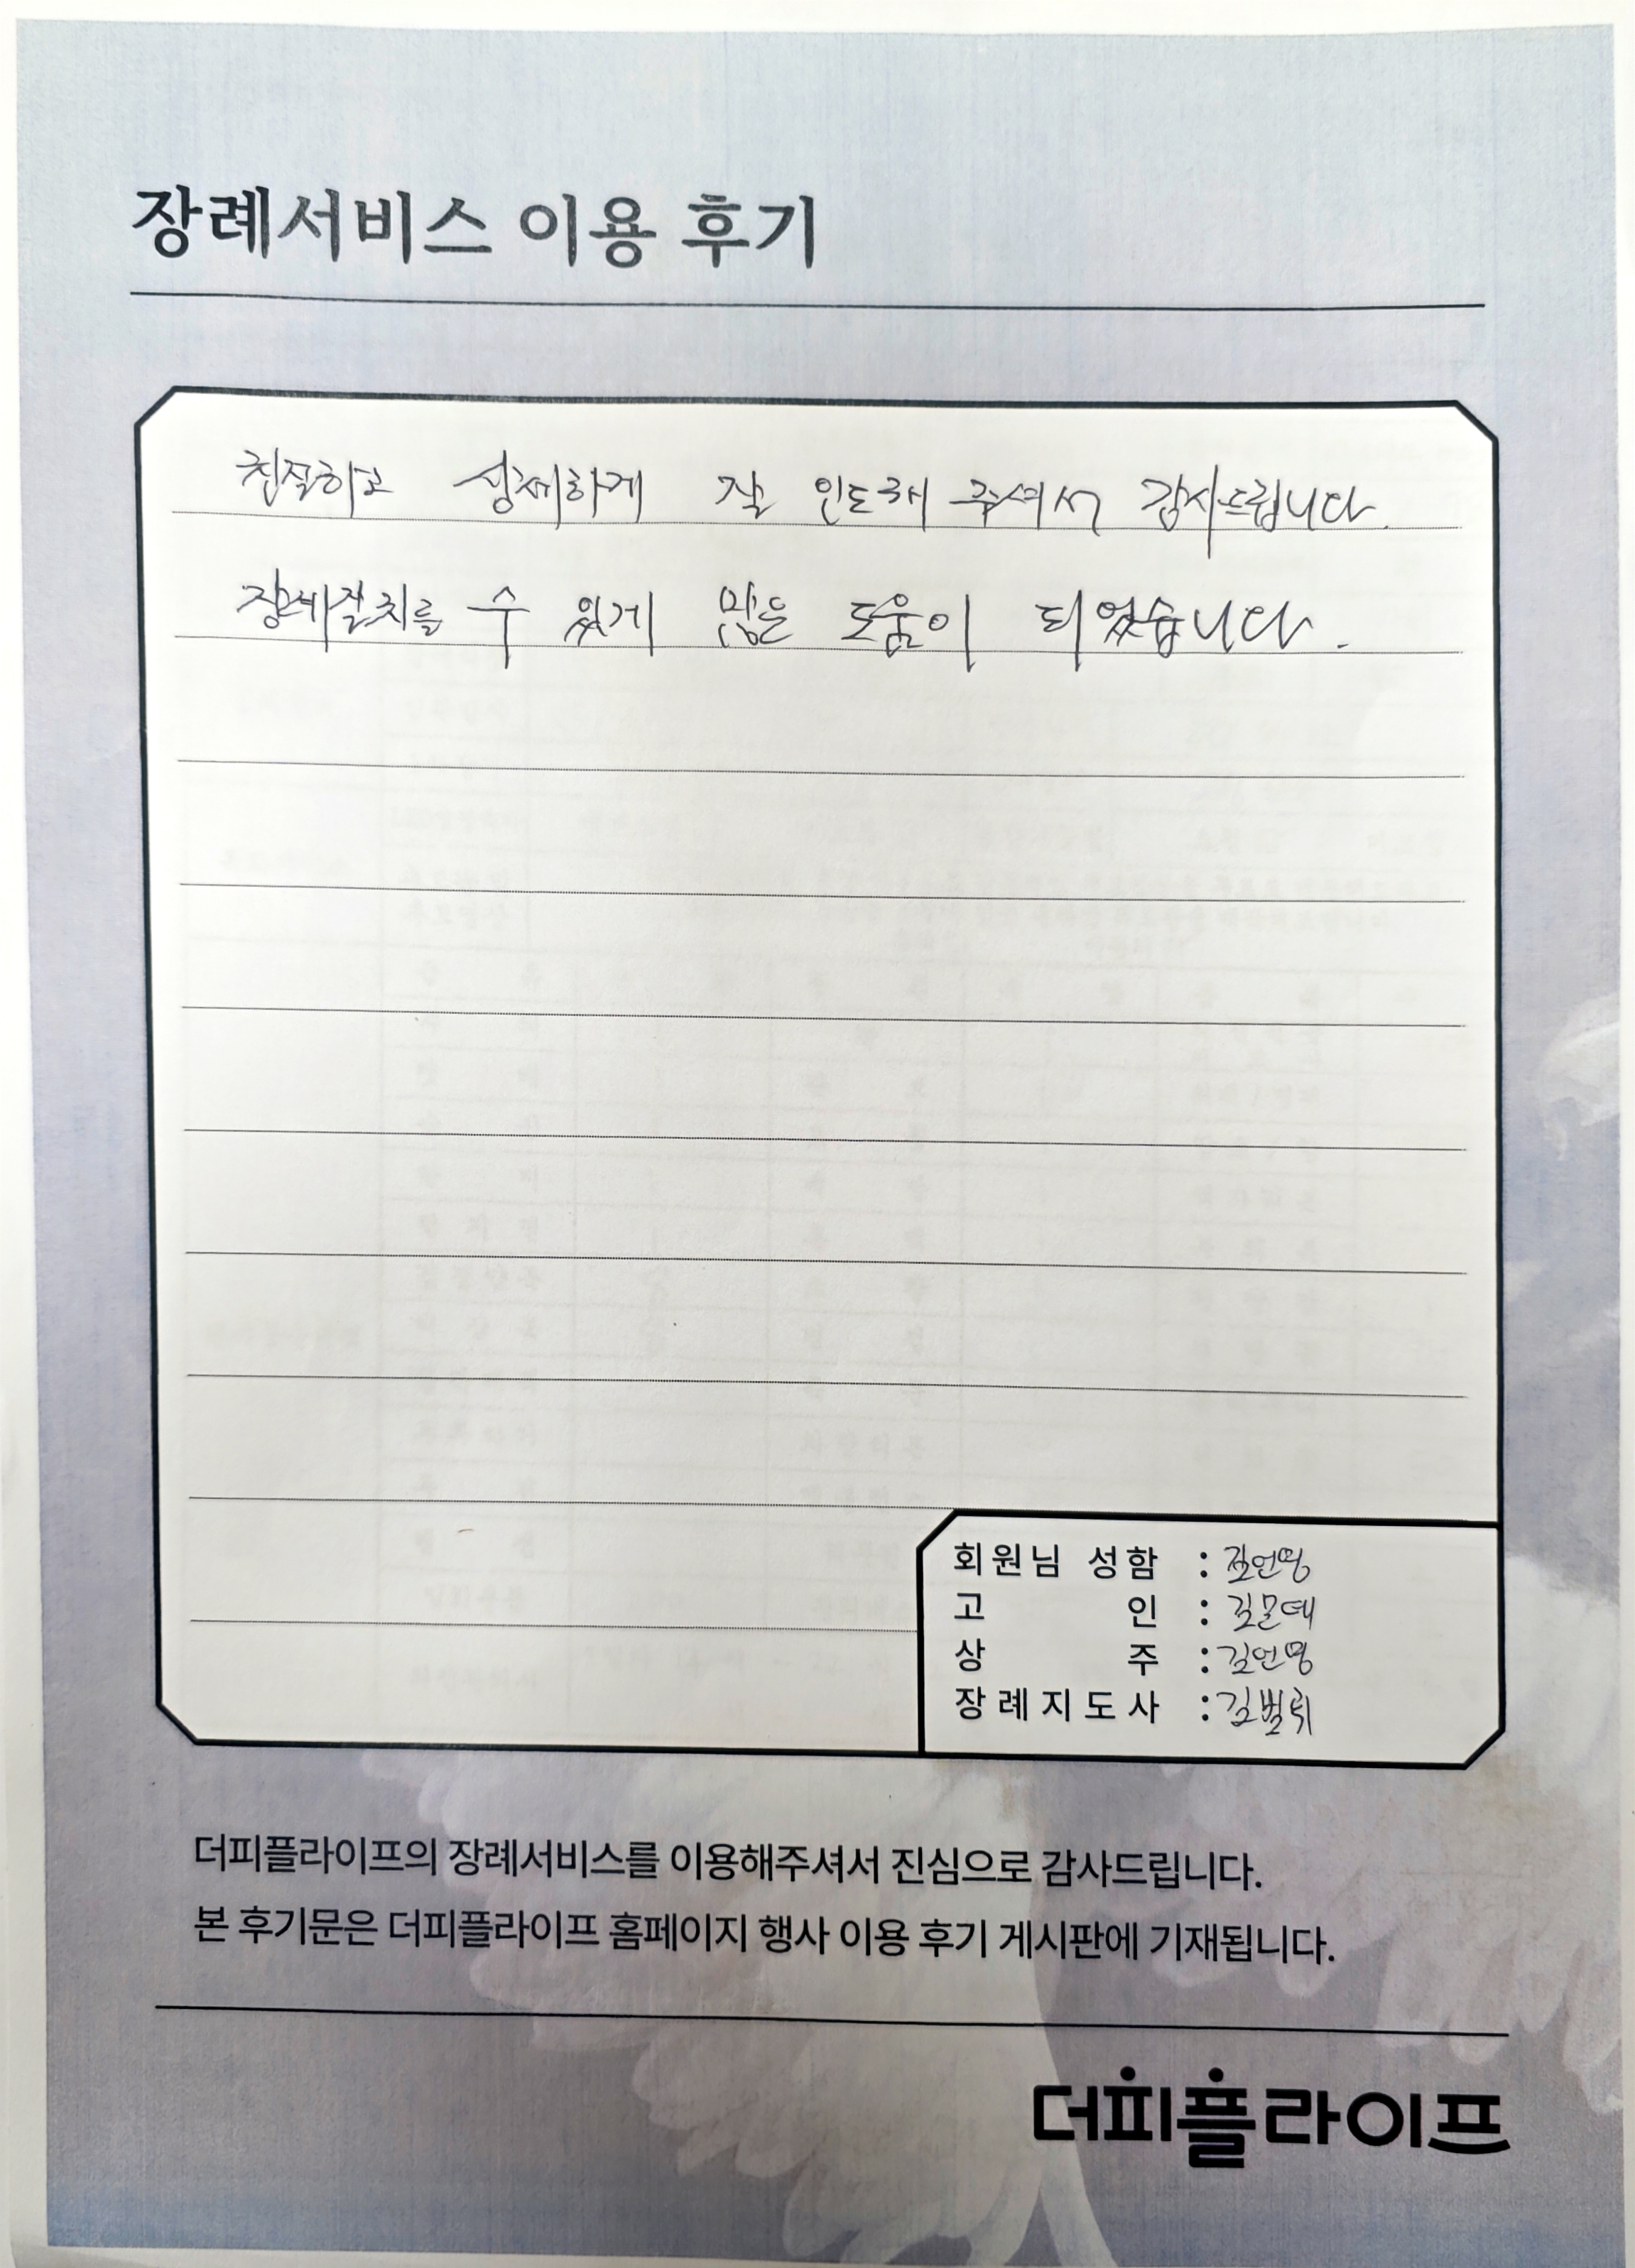 장례서비스 이용 후기
친절하고 상세하게 잘 인도해 주셔서 감사드립니다.
장례절차를 수 있게 많은 도움이 되었습니다.
회원님 성함 : 김언명
고 인 :
상 주 : 김언명
장례지도사 :
더피플라이프의 장례서비스를 이용해주셔서 진심으로 감사드립니다.
본 후기문은 더피플라이프 홈페이지 행사 이용 후기 게시판에 기재됩니다.
더피플라이프